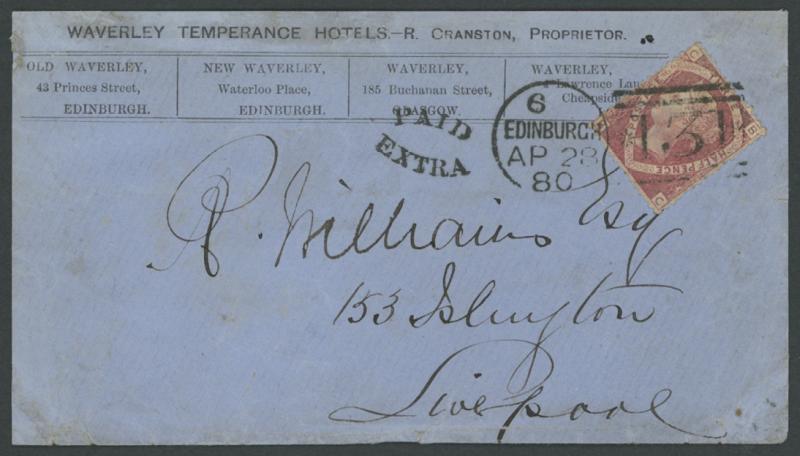 WAVERLEY TEMPERANCE HOTELS.—R. CRANSTON, PROPRIETOR.
OLD WAVERLEY,
43 Princes Street,
EDINBURGH.
NEW WAVERLEY,
Waterloo Place,
EDINBURGH.
WAVERLEY,
185 Buchanan Street,
GLASGOW.
WAVERLEY,
Lawrence Lan
Cheapside
PAID
EXTRA
6
EDINBURGH
AP 28
80
131
HALF PENCE
R. Williams Esq
153 Islington
Liverpool